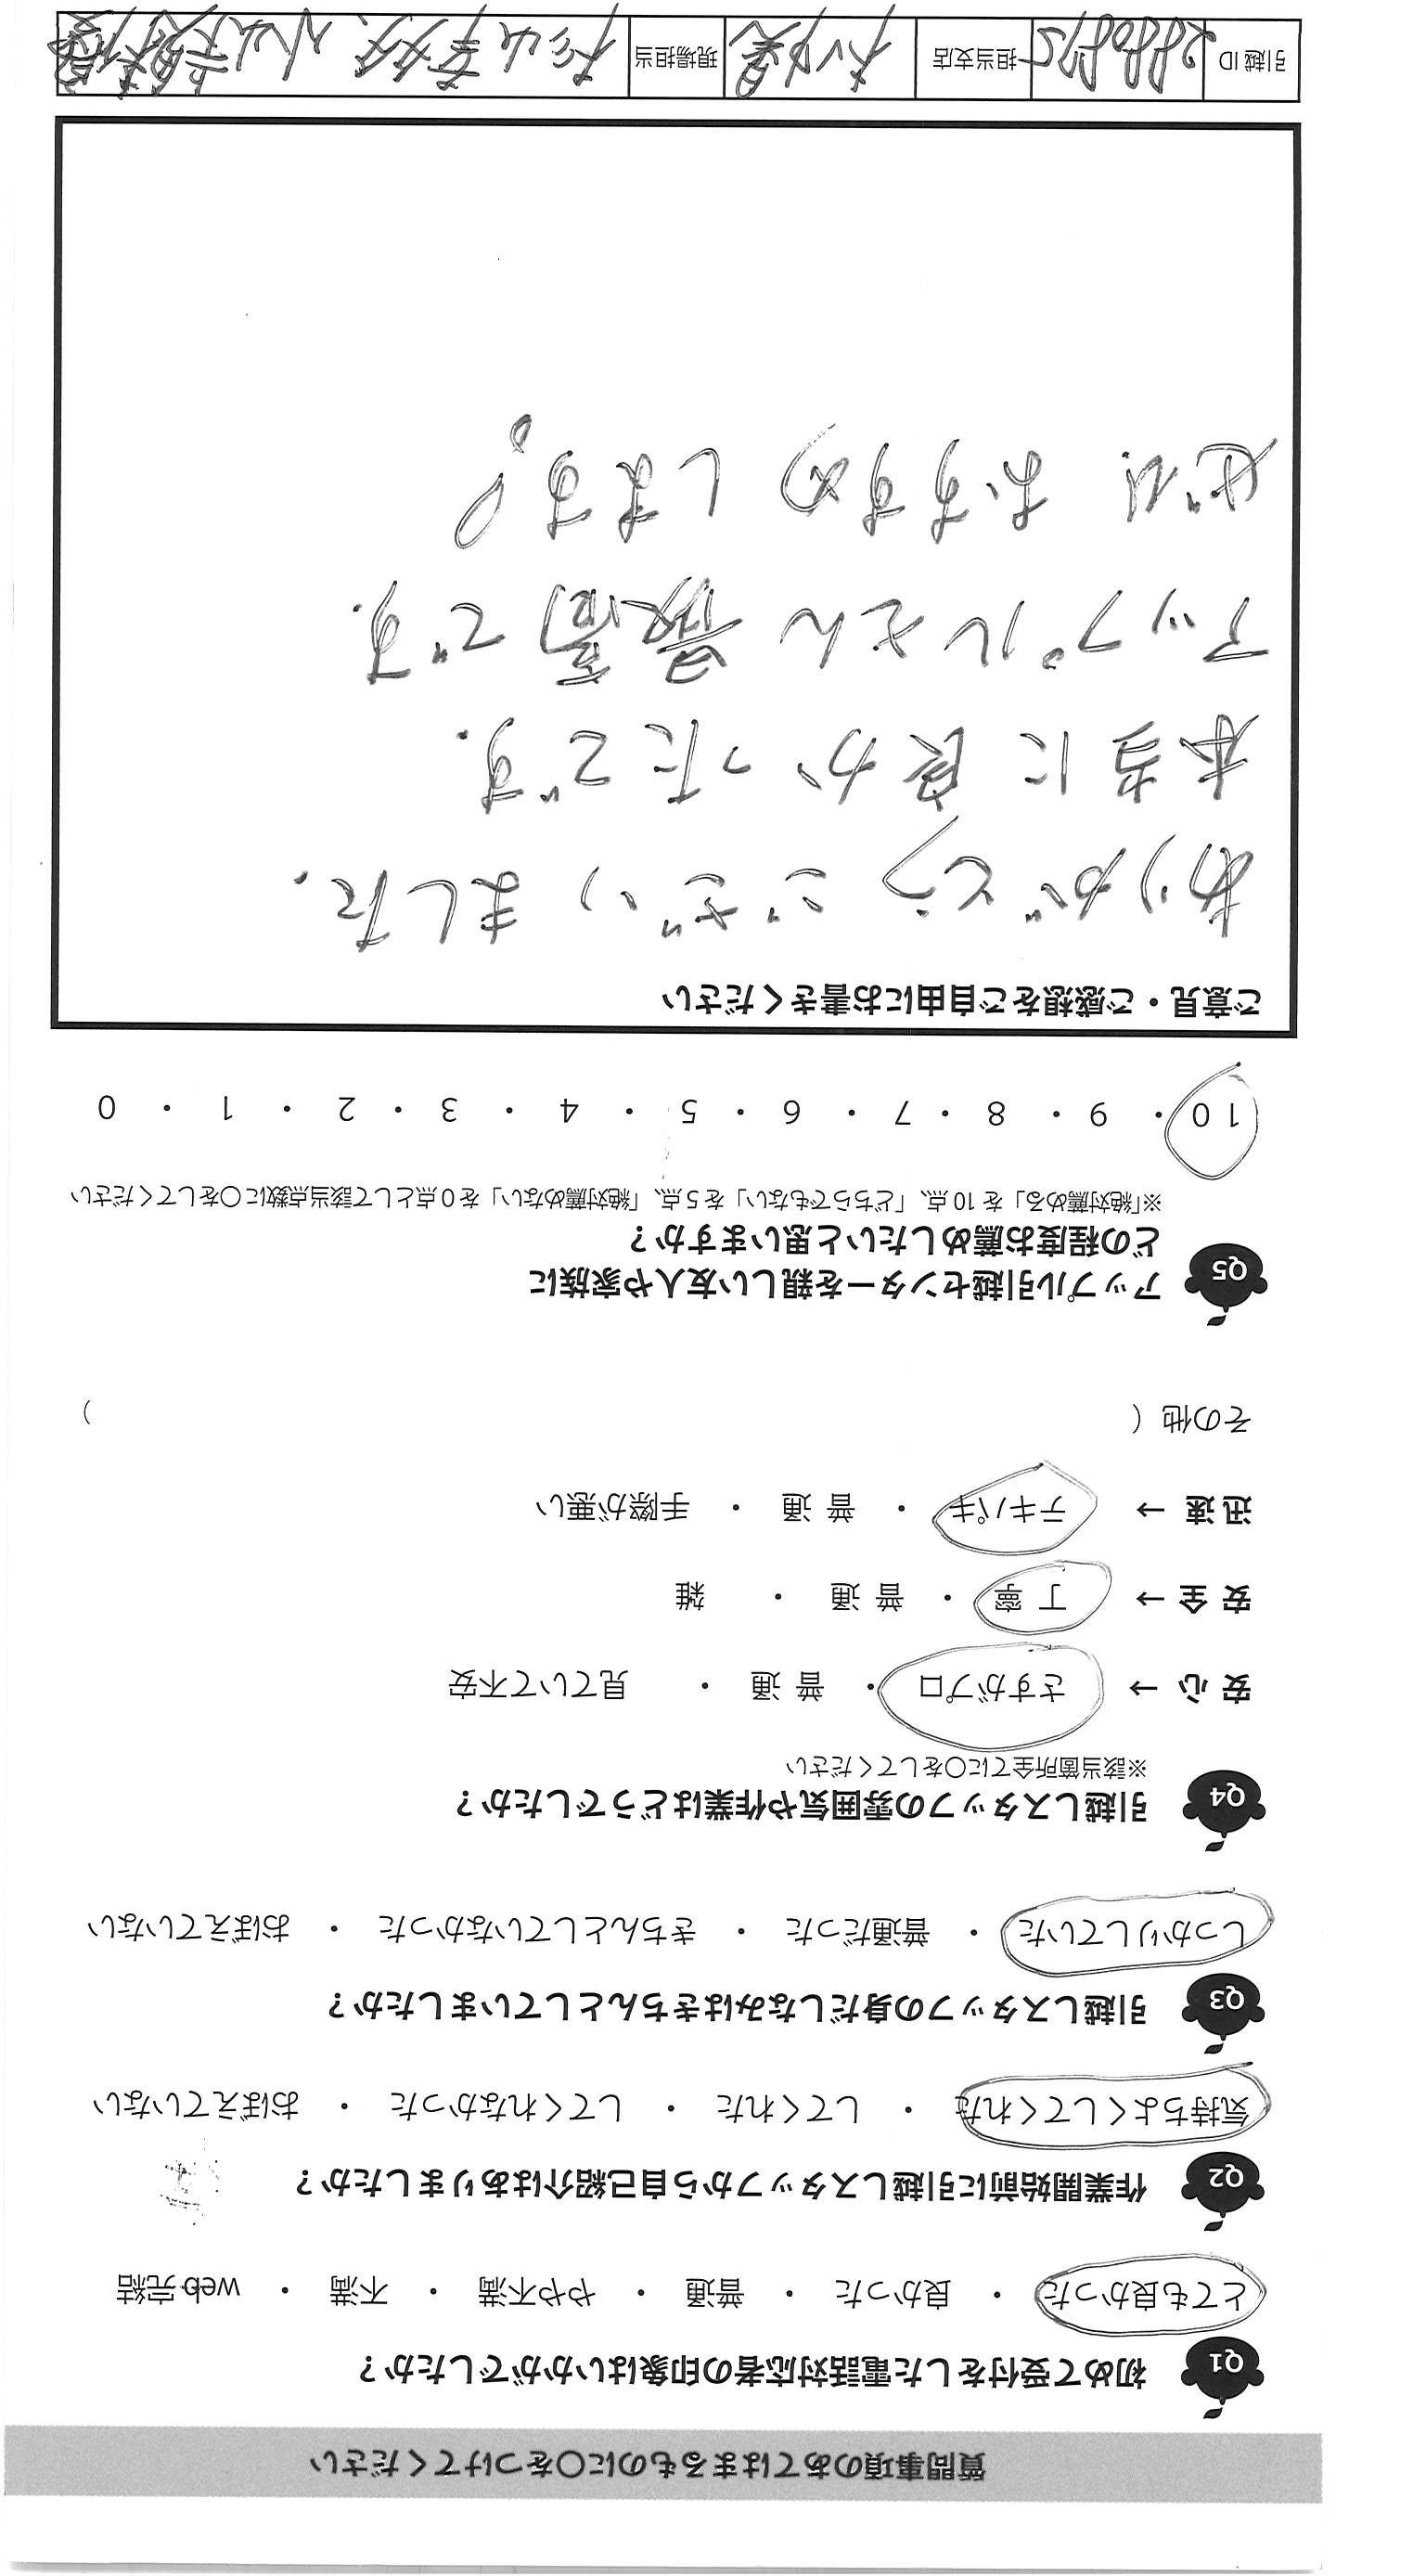 質問事項のあてはまるものに○をつけてください
Q1 初めて受付をした電話対応者の印象はいかがでしたか？
とても良かった ・ 良かった ・ 普通 ・ やや不満 ・ 不満 ・ web完結
Q2 作業開始前に引越しスタッフから自己紹介はありましたか？
気持ちよくしてくれた ・ してくれた ・ してくれなかった ・ おぼえていない
Q3 引越しスタッフの身だしなみはきちんとしていましたか？
しっかりしていた ・ 普通だった ・ きちんとしていなかった ・ おぼえていない
Q4 引越しスタッフの雰囲気や作業はどうでしたか？
※該当箇所全てに○をしてください
安心 → さすがプロ ・ 普通 ・ 見ていて不安
安全 → 丁寧 ・ 普通 ・ 雑
迅速 → テキパキ ・ 普通 ・ 手際が悪い
その他（ ）
Q5 アップル引越センターを親しい友人や家族に
どの程度お薦めしたいと思いますか？
※「絶対薦める」を10点、「どちらでもない」を5点、「絶対薦めない」を0点として該当点数に○をしてください
10 ・ 9 ・ 8 ・ 7 ・ 6 ・ 5 ・ 4 ・ 3 ・ 2 ・ 1 ・ 0
ご意見・ご感想をご自由にお書きください
ありがとうございました.
本当に良かったです.
アップルさん最高です.
ぜひおすすめします!。
引越ID 担当支店 現場担当